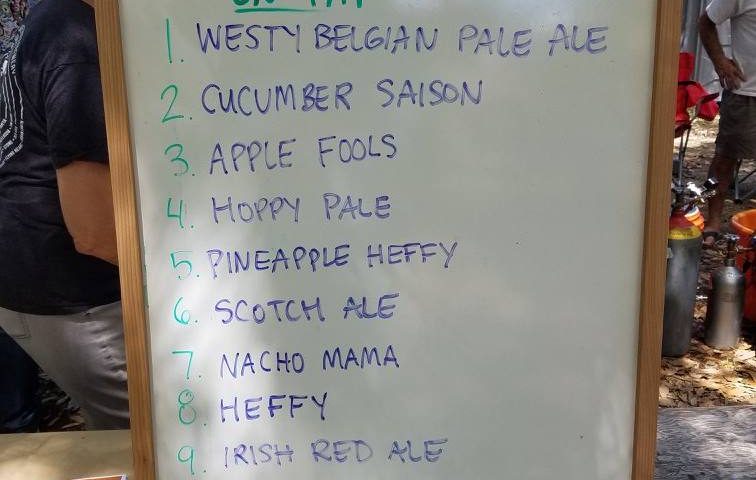 ON TAP
1. WESTY BELGIAN PALE ALE
2. CUCUMBER SAISON
3. APPLE FOOLS
4. HOPPY PALE
5. PINEAPPLE HEFFY
6. SCOTCH ALE
7. NACHO MAMA
8. HEFFY
9. IRISH RED ALE